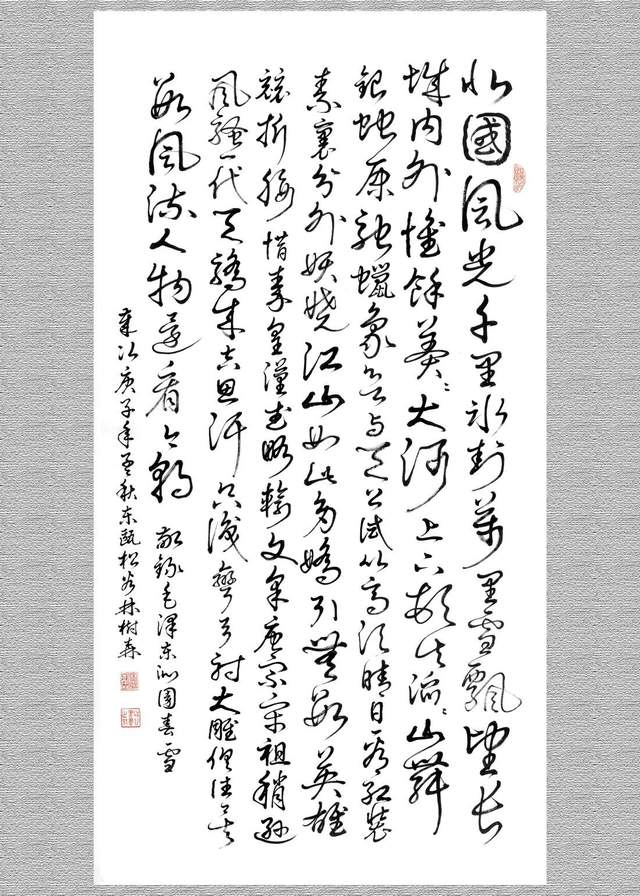 北國風光千里冰封萬里雪飄望长
城内外惟餘莽々大河上下頓失滔々山舞
銀蛇原馳蠟象欲与天公試比高須晴日看紅裝
素裹分外妖嬈江山如此多嬌引無數英雄
競折腰惜秦皇漢武略輸文采唐宗宋祖稍遜
風騷一代天驕成吉思汗只識彎弓射大雕俱往矣
數風流人物還看今朝 敬錄毛澤东沁園春雪
歲次庚子年孟秋东甌松谷林樹森